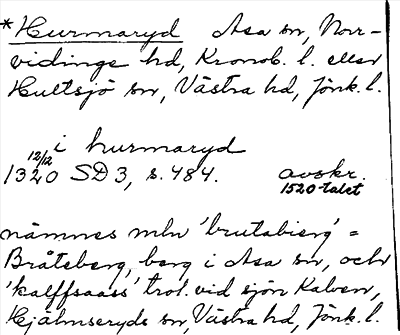 *Hurmaryd Asa sn, Norr-
vidinge hd, Kronob. l. eller
Hultsjö sn, Västra hd, Jönk. l.
i hurmaryd
12/12
1320 SD 3, s. 484. avskr.
1520-talet
nämnes mln 'brutabierg' =
Bråteberg, berg i Asa sn, och
'kalffsaass' trol. vid sjön Kalven,
Hjälmseryds sn, Västra hd, Jönk. l.